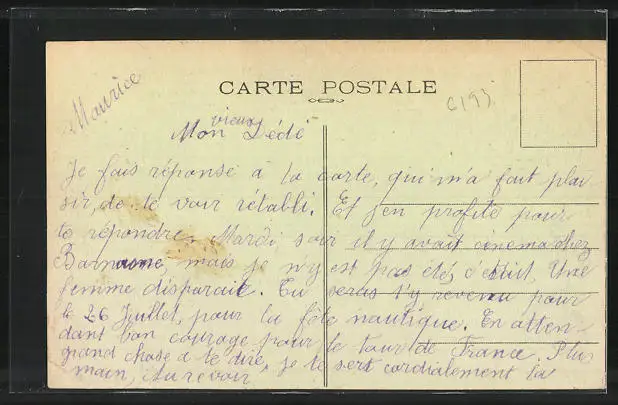 Maurice
CARTE POSTALE
6193
Mon vieux Dédé
Je fais réponse à ta carte, qui m'a fait plai
sir, de te voir rétabli. Et j'en profite pour
te répondre. Mardi soir il y avait cinéma chez
mais je n'y est pas été, c'était, Une
femme disparait. Tu seras t'y revenu pour
le 26 Juillet, pour la fête nautique. En atten-
dant bon courage pour le tour de France. Plus
grand chose à te dire, je te sert cordialement la
main, Au revoir